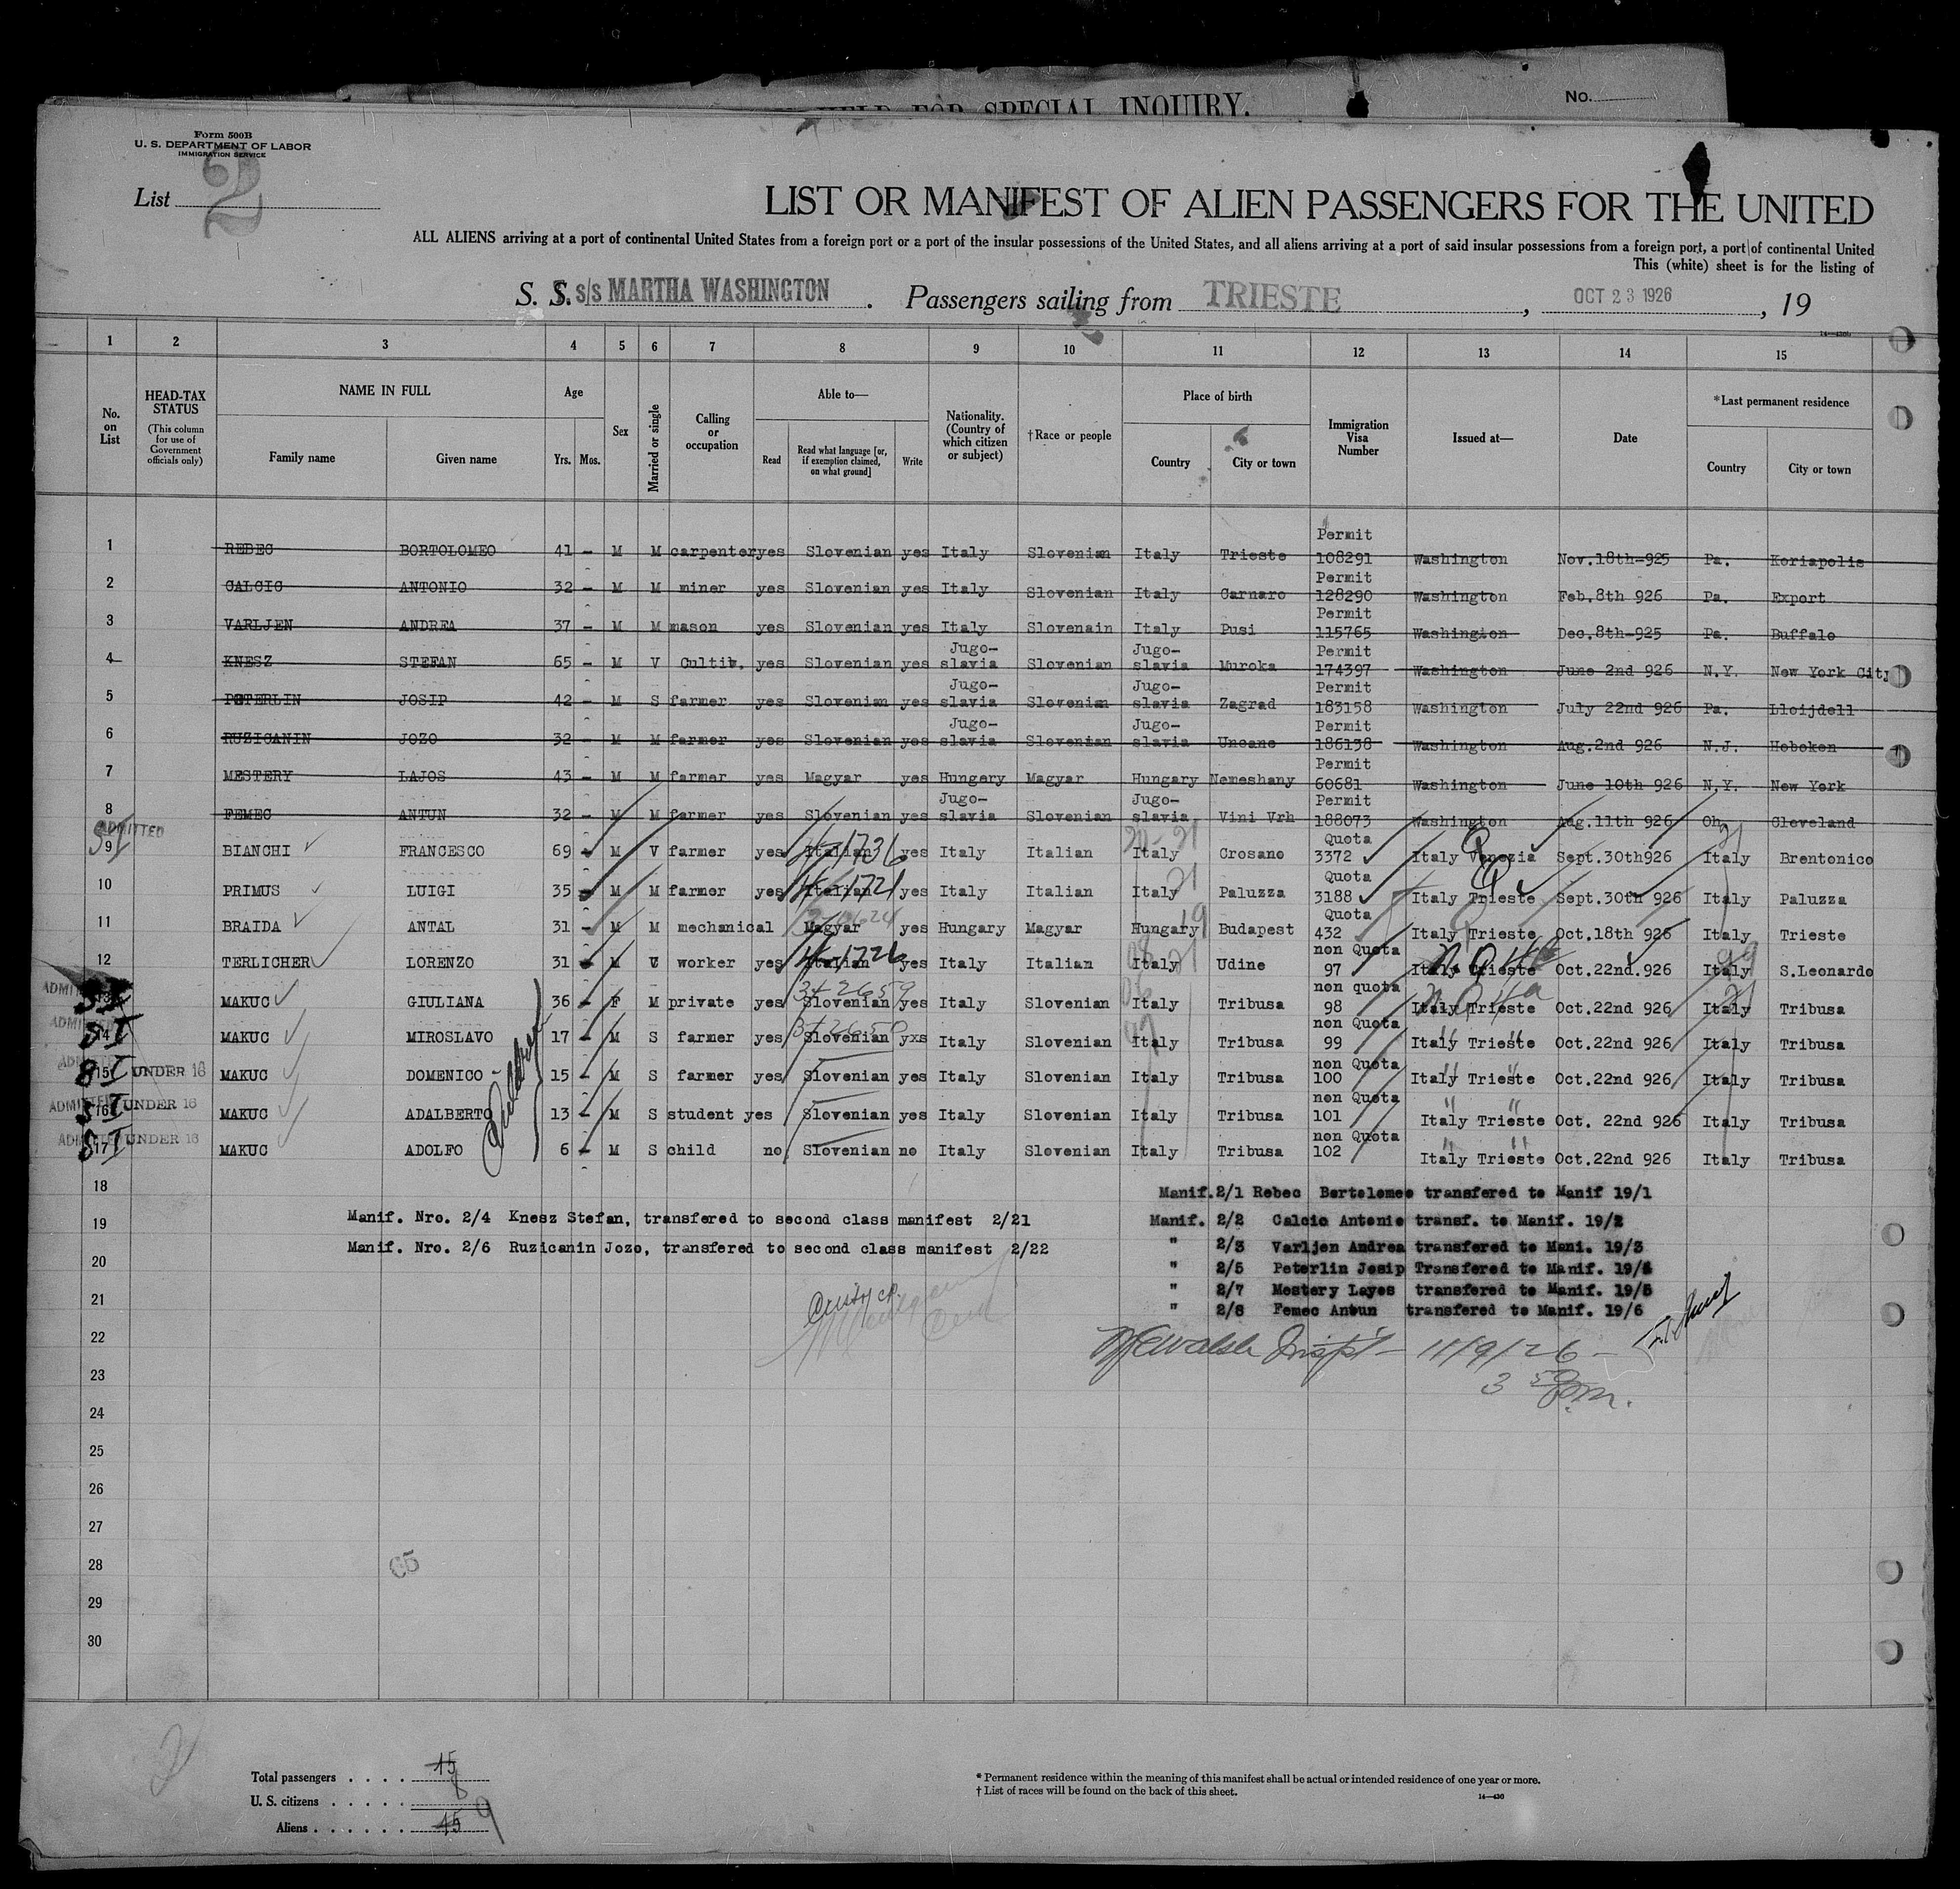 HELD FOR SPECIAL INQUIRY.
No.
Form 500B
U. S. DEPARTMENT OF LABOR
IMMIGRATION SERVICE
List 2
LIST OR MANIFEST OF ALIEN PASSENGERS FOR THE UNITED
ALL ALIENS arriving at a port of continental United States from a foreign port or a port of the insular possessions of the United States, and all aliens arriving at a port of said insular possessions from a foreign port, a port of continental United
This (white) sheet is for the listing of
S. S. s/s MARTHA WASHINGTON. Passengers sailing from TRIESTE, OCT 23 1926, 19
14—430b
1 2 3 4 5 6 7 8 9 10 11 12 13 14 15
No. on List
HEAD-TAX STATUS
(This column for use of Government officials only)
NAME IN FULL
Family name Given name
Age
Yrs. Mos.
Sex
Married or single
Calling or occupation
Able to—
Read
Read what language [or, if exemption claimed, on what ground]
Write
Nationality. (Country of which citizen or subject)
†Race or people
Place of birth
Country City or town
Immigration Visa Number
Issued at—
Date
*Last permanent residence
Country City or town
1 REBEC BORTOLOMEO 41 - M M carpenter yes Slovenian yes Italy Slovenian Italy Trieste Permit 108291 Washington Nov.18th-925 Pa. Koriapolis
2 CALCIC ANTONIO 32 - M M miner yes Slovenian yes Italy Slovenian Italy Carnaro Permit 128290 Washington Feb.8th 926 Pa. Export
3 VARLJEN ANDREA 37 - M M mason yes Slovenian yes Italy Slovenain Italy Pusi Permit 115765 Washington Dec.8th-925 Pa. Buffalo
4 KNESZ STEFAN 65 - M V Cultiv. yes Slovenian yes Jugo-slavia Slovenian Jugo-slavia Muroka Permit 174397 Washington June 2nd 926 N.Y. New York City
5 PETERLIN JOSIP 42 - M S farmer yes Slovenian yes Jugo-slavia Slovenian Jugo-slavia Zagrad Permit 183158 Washington July 22nd 926 Pa. Lloijdell
6 RUZICANIN JOZO 32 - M M farmer yes Slovenian yes Jugo-slavia Slovenian Jugo-slavia Uncane Permit 186138 Washington Aug.2nd 926 N.J. Hoboken
7 MESTERY LAJOS 43 - M M farmer yes Magyar yes Hungery Magyar Hungary Nemeshany Permit 60681 Washington June 10th 926 N.Y. New York
8 FEMEC ANTUN 32 - M M farmer yes Slovenian yes Jugo-slavia Slovenian Jugo-slavia Vini Vrh Permit 188073 Washington Aug.11th 926 Oh. Cleveland
ADMITTED SI
9 BIANCHI FRANCESCO 69 - M V farmer yes Italian yes Italy Italian Italy Crosano Quota 3372 Italy Venezia Sept.30th926 Italy Brentonico
10 PRIMUS LUIGI 35 - M M farmer yes Italian yes Italy Italian Italy Paluzza Quota 3188 Italy Trieste Sept.30th 926 Italy Paluzza
11 BRAIDA ANTAL 31 - M M mechanical Magyar yes Hungary Magyar Hungary Budapest Quota 432 Italy Trieste Oct.18th 926 Italy Trieste
12 TERLICHER LORENZO 31 - M worker yes Italian yes Italy Italian Italy Udine non Quota 97 Italy Trieste Oct.22nd.926 Italy S.Leonardo
13 SI MAKUC GIULIANA 36 - F M private yes Slovenian yes Italy Slovenian Italy Tribusa non quota 98 Italy Trieste Oct.22nd 926 Italy Tribusa
14 SI MAKUC MIROSLAVO 17 - M S farmer yes Slovenian yxs Italy Slovenian Italy Tribusa non Quota 99 Italy Trieste Oct.22nd 926 Italy Tribusa
15 SI UNDER 16 MAKUC DOMENICO 15 - M S farmer yes Slovenian yes Italy Slovenian Italy Tribusa non Quota 100 Italy Trieste Oct.22nd 926 Italy Tribusa
16 SI UNDER 16 MAKUC ADALBERTO 13 - M S student yes Slovenian yes Italy Slovenian Italy Tribusa non Quota 101 Italy Trieste Oct. 22nd 926 Italy Tribusa
17 SI UNDER 16 MAKUC ADOLFO 6 - M S child no Slovenian no Italy Slovenian Italy Tribusa non Quota 102 Italy Trieste Oct.22nd 926 Italy Tribusa
18 Manif.2/1 Rebec Bortolomeo transfered to Manif 19/1
19 Manif. Nro. 2/4 Knesz Stefan, transfered to second class manifest 2/21 Manif. 2/2 Calcic Antonio transf. to Manif. 19/2
Manif. Nro. 2/6 Ruzicanin Jozo, transfered to second class manifest 2/22 " 2/3 Varljen Andrea transfered to Mani. 19/3
20 " 2/5 Peterlin Josip Transfered to Manif. 19/4
" 2/7 Mestery Layos transfered to Manif. 19/5
21 " 2/8 Femec Antun transfered to Manif. 19/6
22 Walsh Inspt - 11/9/26 -
23 3 50 P.m.
24
25
26
27
28
29
30
2
Total passengers . . . . 15
U. S. citizens . . . . .
Aliens . . . . . . 15 9
* Permanent residence within the meaning of this manifest shall be actual or intended residence of one year or more.
† List of races will be found on the back of this sheet.
14—430